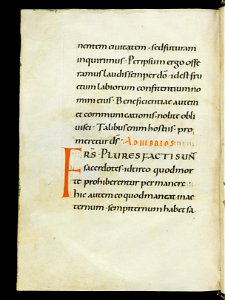 nentem ciuitatem · sed futuram
inquirimus · Per ipsum ergo offe
ramus laudis semper dō · id est fru
ctum labiorum confitentium no
mini eius · Beneficientiae autem
et communicationis · nolite obli
uisci · Talibus enim hostiis · pro
meretur dš · AD HEBREOS
FRŠ · PLURES FACTI SUÑ
sacerdotes · idcirco quod mor
te prohiberentur permanere ·
hic autem eo quod maneat in ae
ternum · sempiternum habet sa